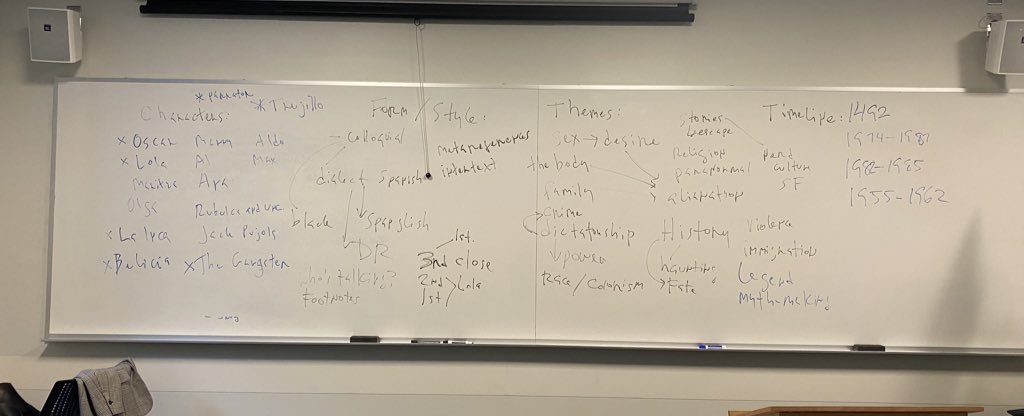 * narrator
* Trujillo
Characters:
x Oscar
x Lola
Maritza
Olga
x La Inca
x Belicia
Al
Ana
Jack Pujols
x The Gangster
Aldo
Max
Form/Style:
colloquial
dialect
Spanish
intertext
black
Spanglish
DR
who's talking?
Footnotes
1st.
3rd close
2nd
1st
Lola
Themes:
sex → desire
the body
family
crime
dictatorship
power
Race/Colonism
stories
escape
Religion
paranormal
alienation
nerd
culture
SF
History
haunting
Fate
violence
immigration
Legend
myth-making
Timeline:
1492
1974-1987
1982-1985
1955-1962